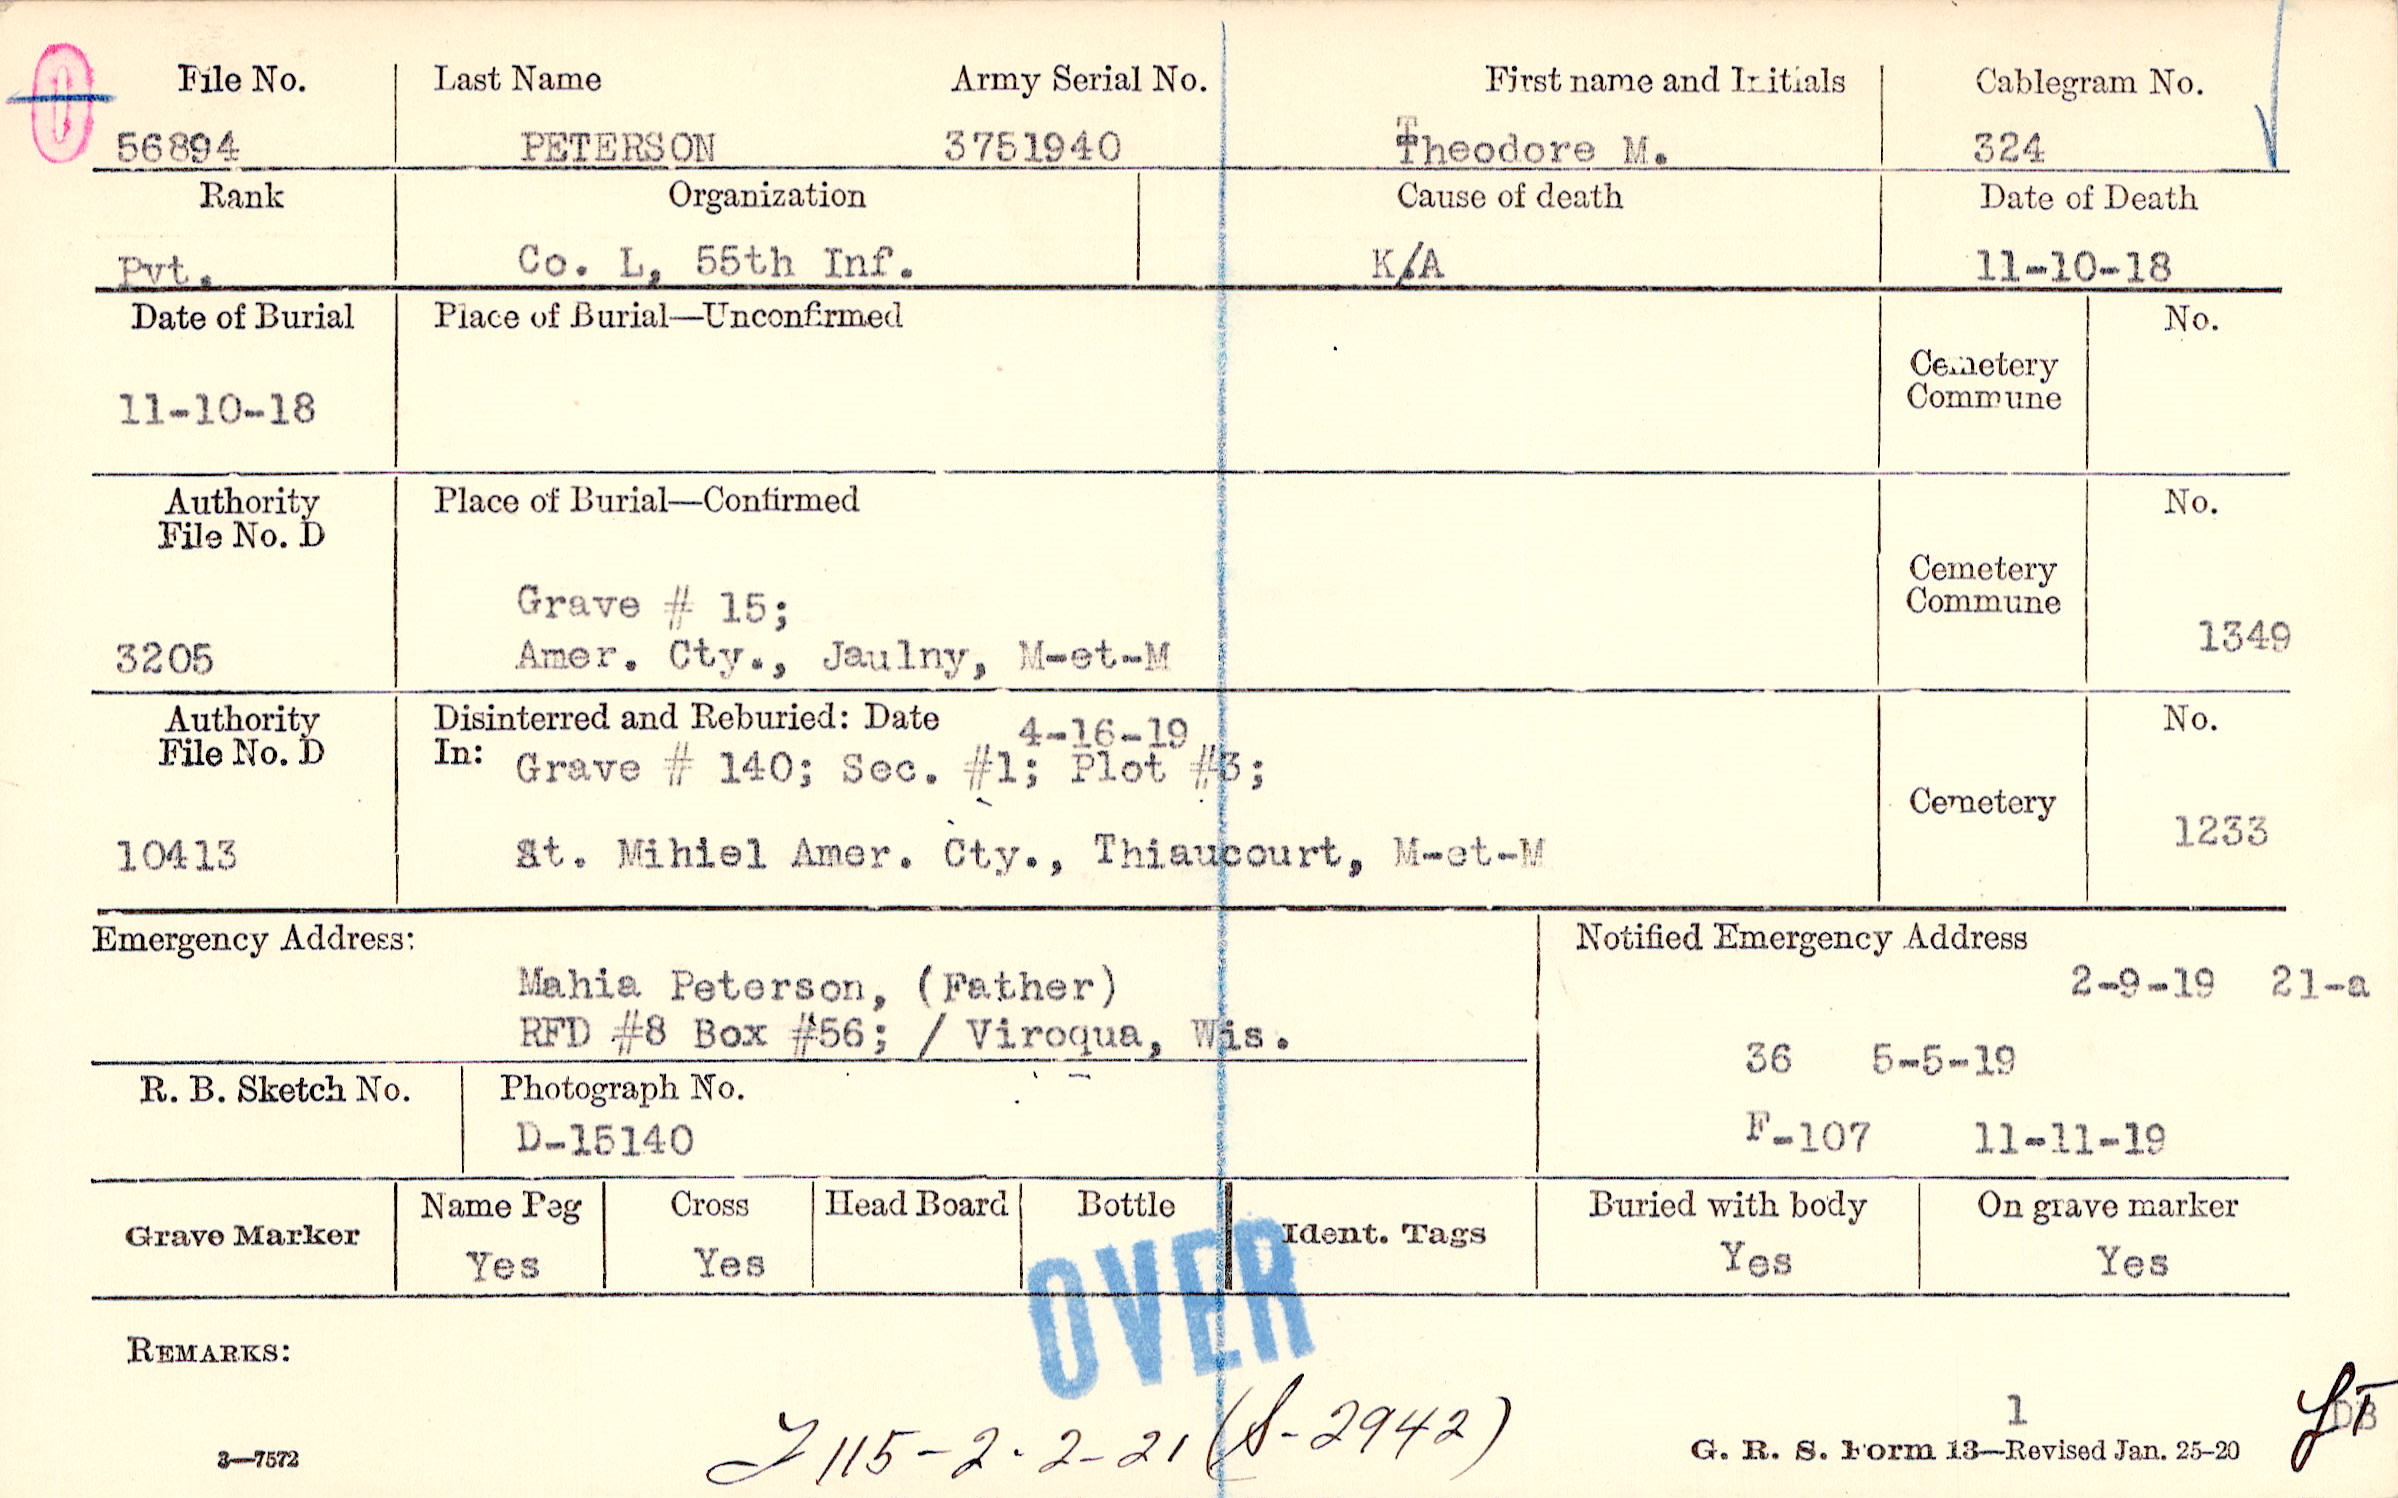 File No. Last Name Army Serial No. First name and Initials Cablegram No.
56894 PETERSON 3751940 Theodore M. 324
Rank Organization Cause of death Date of Death
Pvt. Co. L, 55th Inf. K/A 11-10-18
Date of Burial Place of Burial—Unconfirmed No.
Cemetery
Commune
11-10-18
Authority Place of Burial—Confirmed No.
File No. D
Cemetery
Commune
Grave # 15;
1349
3205 Amer. Cty., Jaulny, M-et-M
Authority Disinterred and Reburied: Date 4-16-19 No.
File No. D In: Grave # 140; Sec. #1; Plot #3;
Cemetery
1233
10413 St. Mihiel Amer. Cty., Thiaucourt, M-et-M
Emergency Address: Notified Emergency Address
Mahia Peterson, (Father) 2-9-19 21-a
RFD #8 Box #56; / Viroqua, Wis.
36 5-5-19
R. B. Sketch No. Photograph No.
D-15140 F-107 11-11-19
Name Peg Cross Head Board Bottle Buried with body On grave marker
Grave Marker Ident. Tags
Yes Yes Yes Yes
OVER
REMARKS:
1
115-2-2-21 (S-2942)
3—7572 G. R. S. Form 13—Revised Jan. 25-20